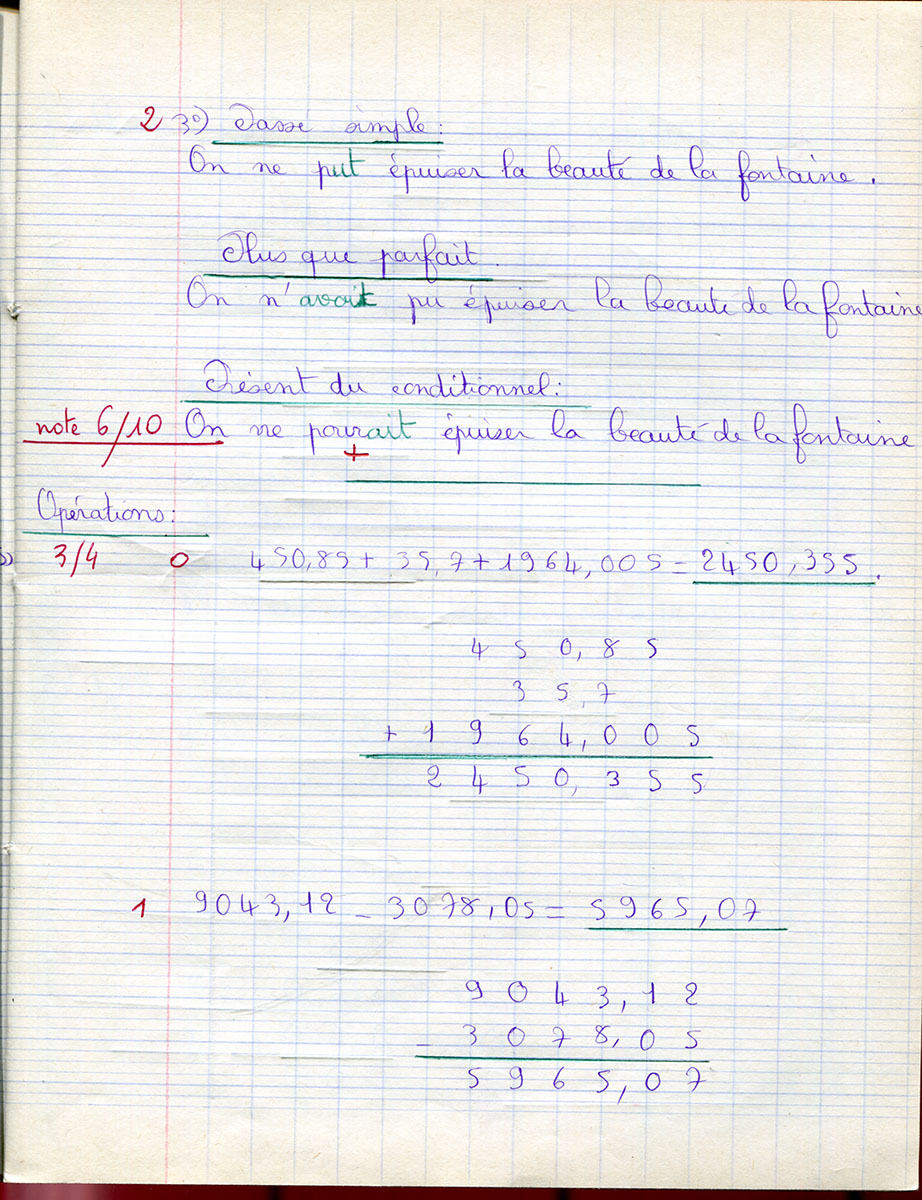 2 3º) Passé simple:
On ne put épuiser la beauté de la fontaine.
Plus que parfait.
On n'avait pu épuiser la beauté de la fontaine
Présent du conditionnel:
note 6/10 On ne pourait épuiser la beauté de la fontaine
+
Opérations:
3/4 0 450,85 + 35,7 + 1964,005 = 2450,355.
450,85
35,7
+ 1964,005
2450,355
1 9043,12 - 3078,05 = 5965,07
9043,12
- 3078,05
5965,07